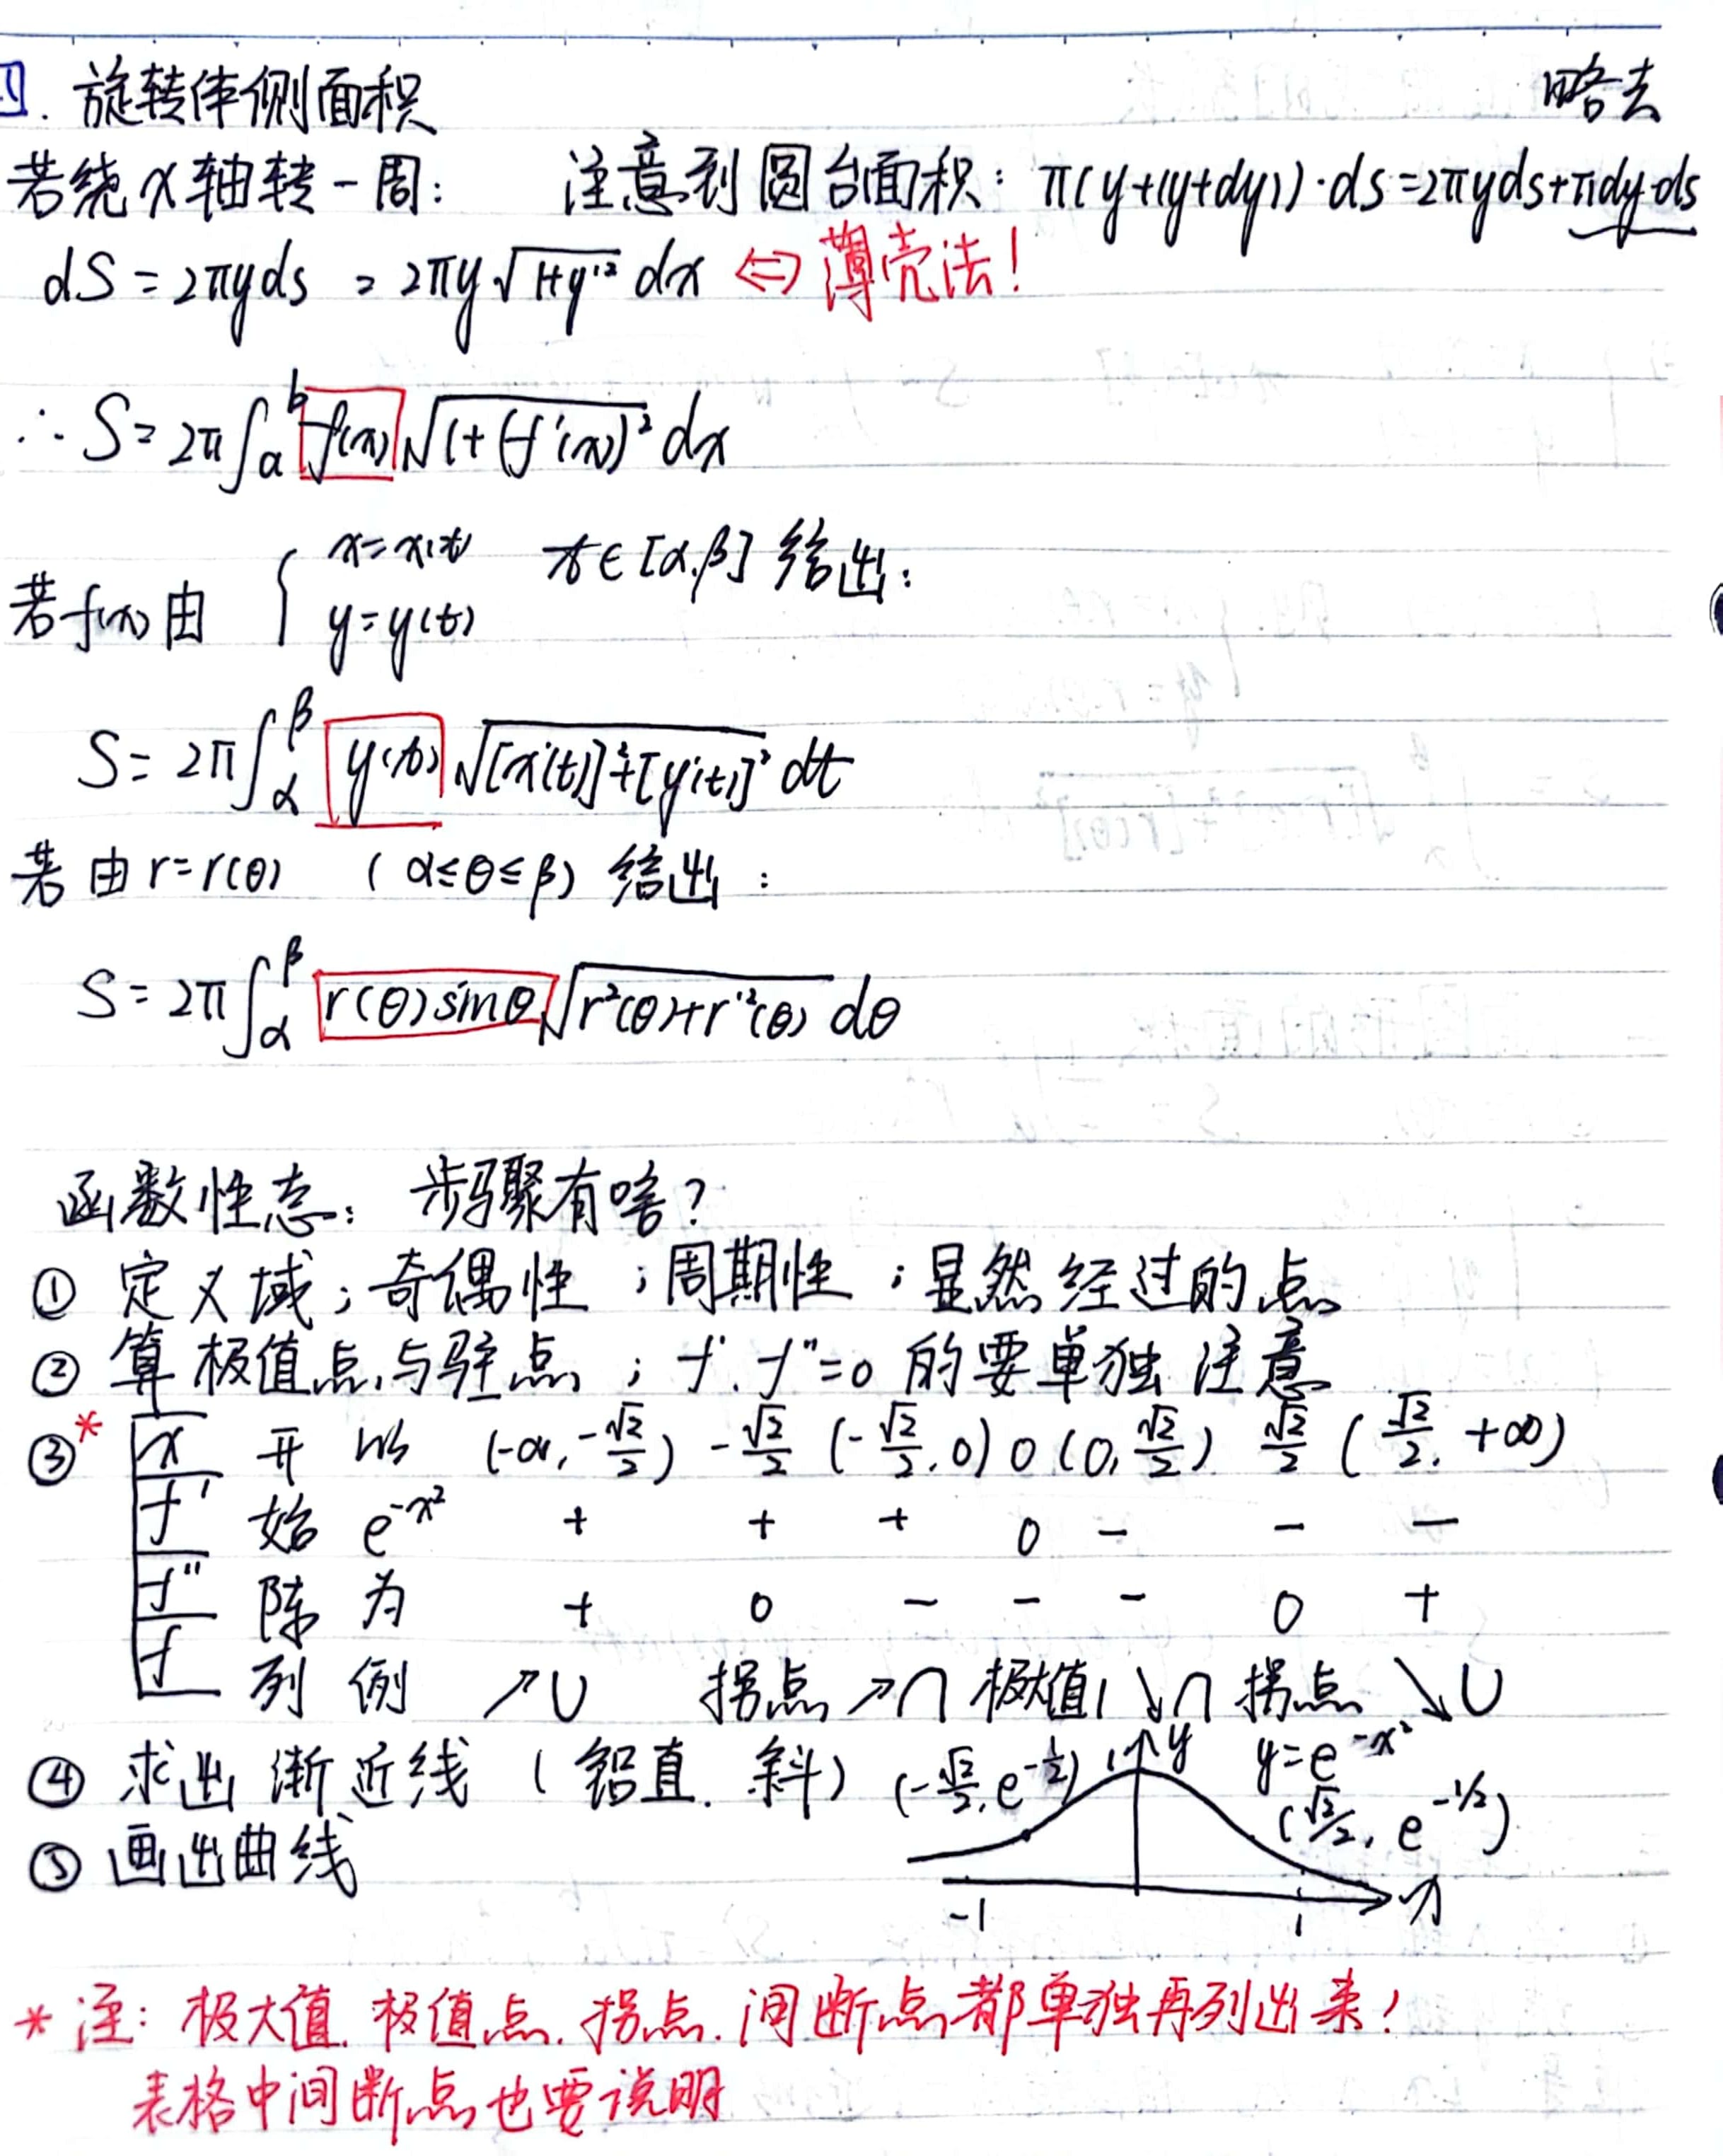 四. 旋转体侧面积 略去
若绕x轴转一周: 注意到圆台面积: π(y+(y+dy))·ds=2πyds+πdy·ds
dS=2πyds=2πy√(1+y'²) dx ⇔ 薄壳法!
∴ S=2π∫_a^b f(x)√(1+(f'(x))² dx
若f(x)由 { x=x(t) t∈[α,β] 给出:
y=y(t)
S=2π∫_α^β y(t)√([x'(t)]²+[y'(t)]²) dt
若由r=r(θ) (α≤θ≤β) 给出:
S=2π∫_α^β r(θ)sinθ√(r²(θ)+r'²(θ)) dθ
函数性态: 步骤有啥?
① 定义域;奇偶性;周期性;显然经过的点
② 算极值点与驻点; f'.f''=0 的要单独注意
③* x 开 以 (-∞,-√2/2) -√2/2 (-√2/2,0) 0 (0,√2/2) √2/2 (√2/2,+∞)
f' 始 e^{-x²} + + + 0 - - -
f'' 陈 为 + 0 - - - 0 +
f 列 例 ↗∪ 拐点 ↗∩ 极大值1 ↘∩ 拐点 ↘∪
④ 求出渐近线 (铅直. 斜) (-√2/2, e^{-1/2}) 1 y y=e^{-x²}
(√2/2, e^{-1/2})
⑤ 画出曲线
-1 1 x
* 注: 极大值. 极值点. 拐点. 间断点都单独再列出来!
表格中间断点也要说明